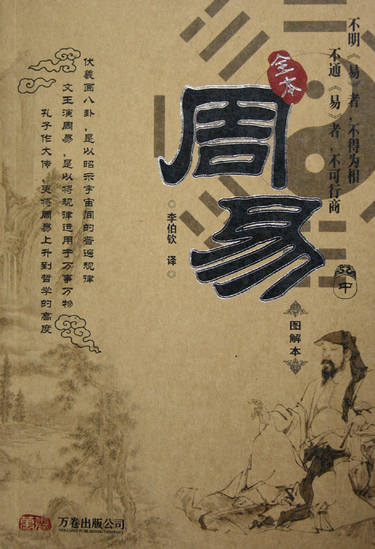 不明《易》者，不得为相
不通《易》者，不可行商
全本
周易
李伯钦 译
图解本
伏羲画八卦，是以昭示宇宙间的普遍规律
文王演周易，是以将规律运用于万事万物
孔子作大传，更将周易上升到哲学的高度
万卷出版公司